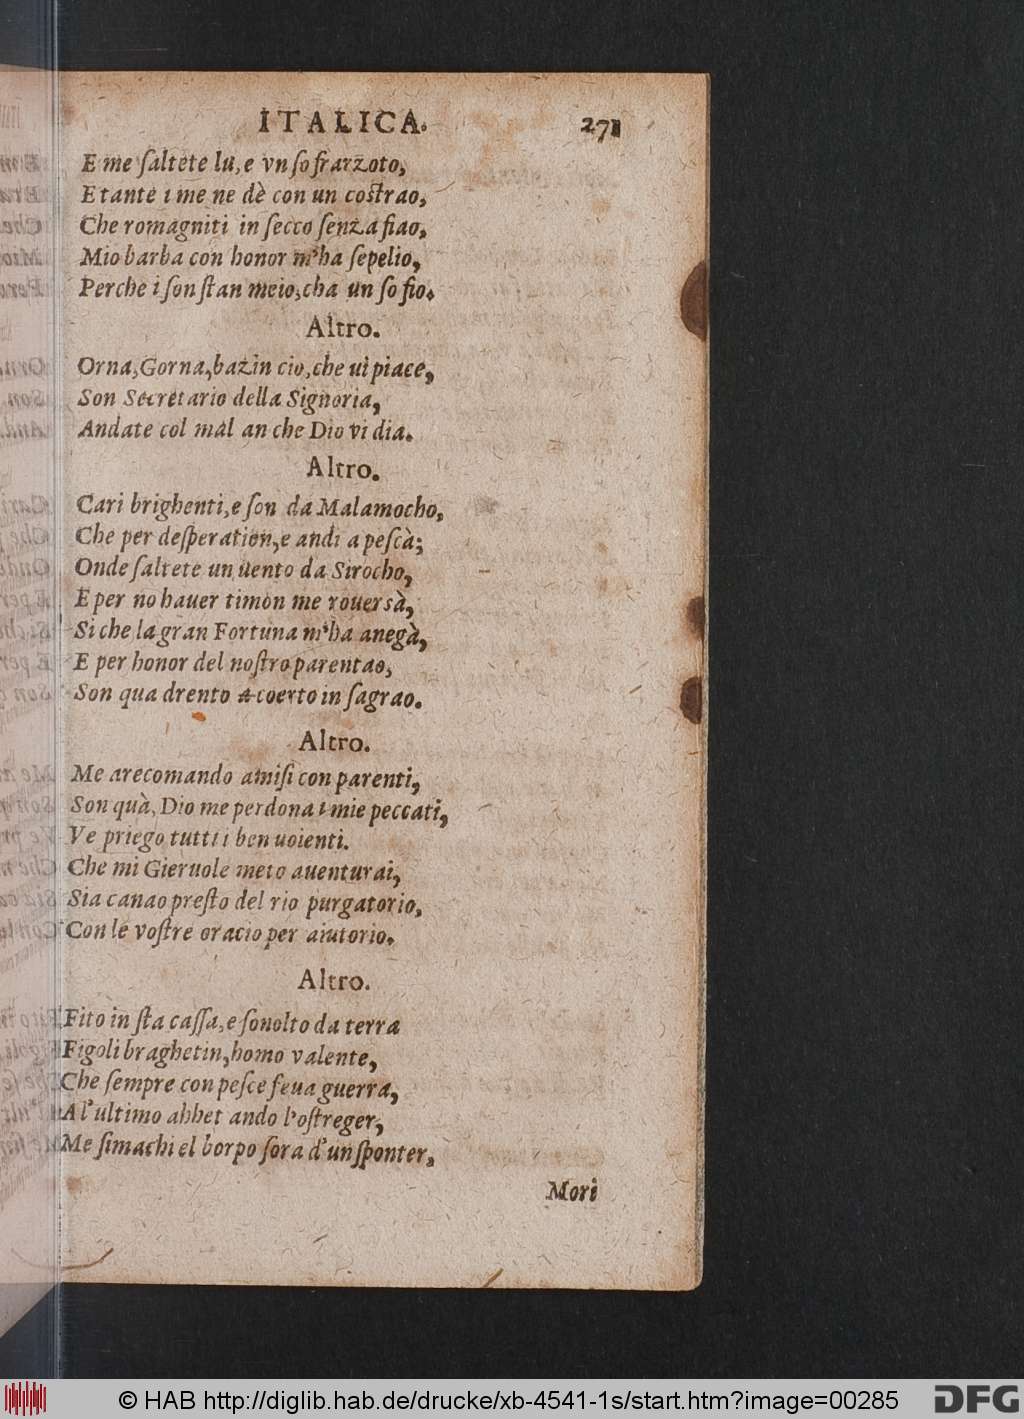 ITALICA. 271
E me ſaltete lu, e vn ſo frarzoto,
E tante i me ne dè con un coſtrao,
Che romagniti in ſecco ſenza fiao,
Mio barba con honor m'ha ſepelio,
Perche i ſon ſtan meio, cha un ſo fio.
Altro.
Orna, Gorna, bazin cio, che ui piace,
Son Secretario della Signoria,
Andate col mal an che Dio vi dia.
Altro.
Cari brighenti, e ſon da Malamocho,
Che per deſperation, e andi a peſcà;
Onde ſaltete un uento da Sirocho,
E per no hauer timon me rouersà,
Si che la gran Fortuna m'ha anegà,
E per honor del noſtro parentao,
Son qua drento a coerto in ſagrao.
Altro.
Me arecomando amiſi con parenti,
Son quà, Dio me perdona i mie peccati,
Ve priego tutti i ben uoienti.
Che mi Gieruole meto auenturai,
Sia canao preſto del rio purgatorio,
Con le voſtre oracio per aiutorio.
Altro.
Fito in ſta caſſa, e ſonolto da terra
Figoli braghetin, homo valente,
Che ſempre con peſce feua guerra,
A l'ultimo abbet ando l'oſtreger,
Me ſimachi el borpo ſora d'un ſponter,
Mori
© HAB http://diglib.hab.de/drucke/xb-4541-1s/start.htm?image=00285
DFG